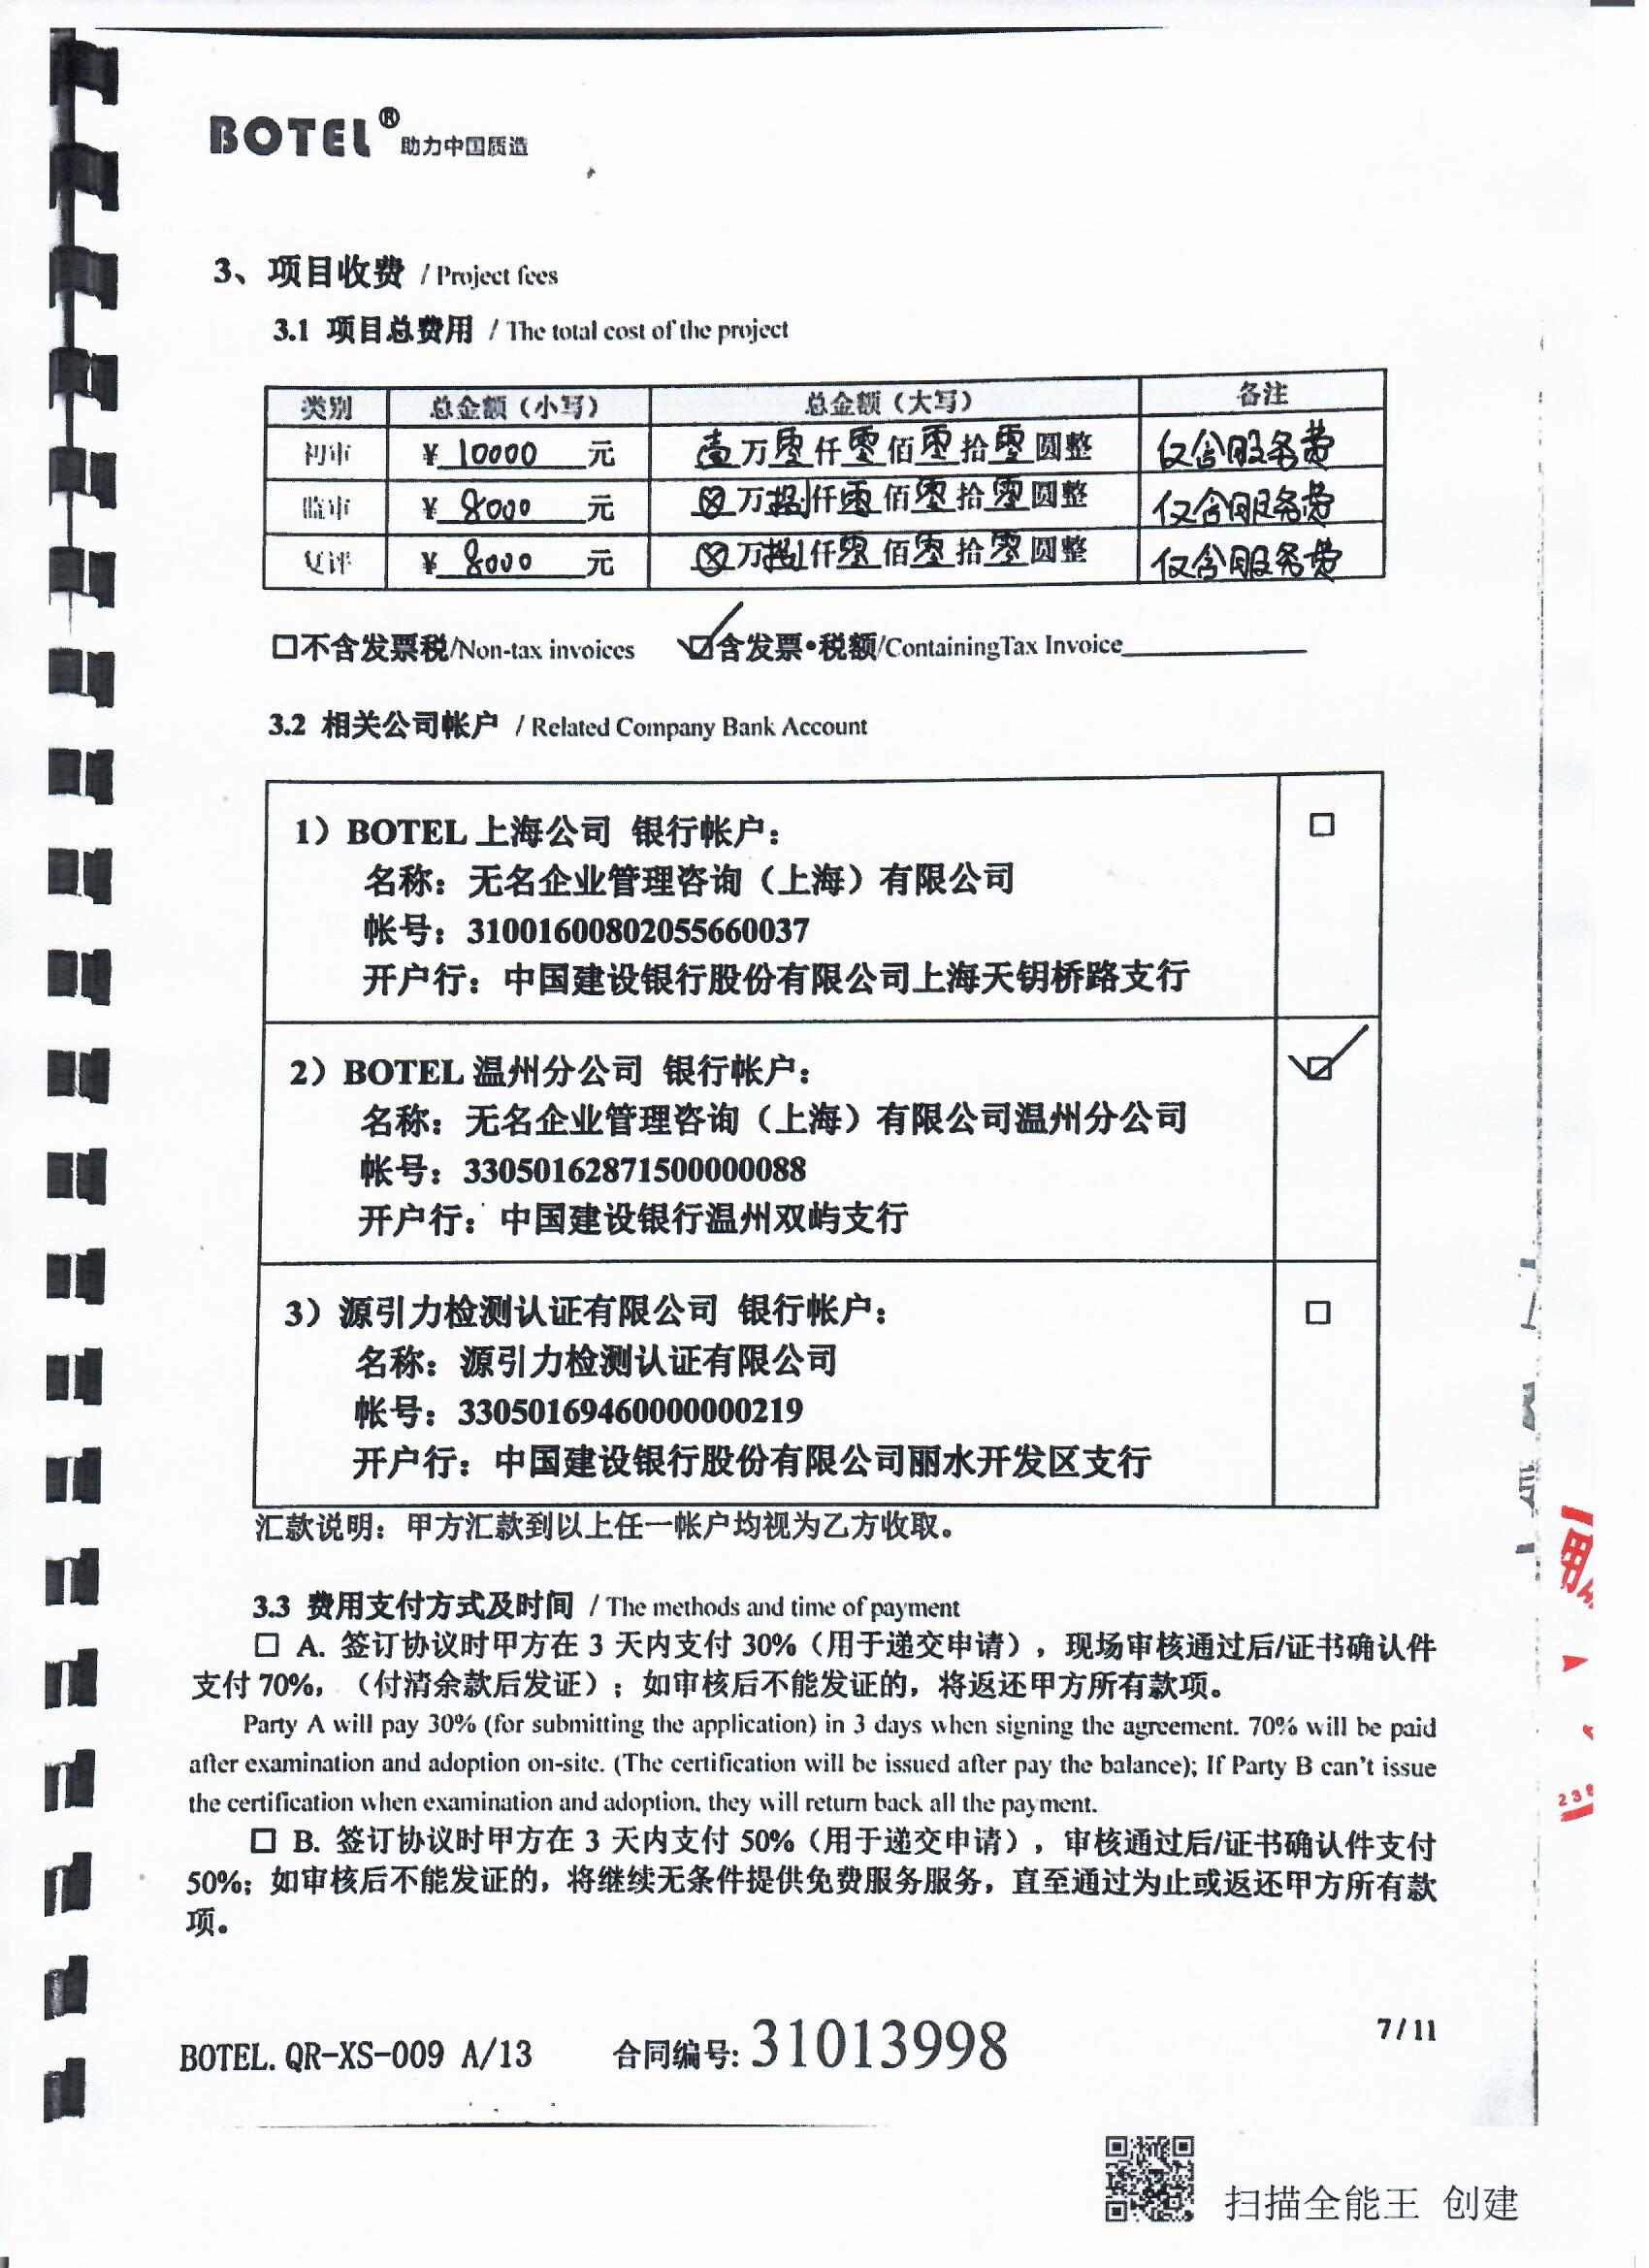 BOTEL® 助力中国质造
3、项目收费 / Project fees
3.1 项目总费用 / The total cost of the project
类别 总金额（小写） 总金额（大写） 备注
初审 ¥ 10000 元 壹万零仟零佰零拾零圆整 仅含服务费
监审 ¥ 8000 元 ⊗万捌仟零佰零拾零圆整 仅含服务费
复评 ¥ 8000 元 ⊗万捌仟零佰零拾零圆整 仅含服务费
□不含发票税/Non-tax invoices ☑含发票•税额/ContainingTax Invoice
3.2 相关公司帐户 / Related Company Bank Account
1）BOTEL 上海公司 银行帐户： □
名称：无名企业管理咨询（上海）有限公司
帐号：31001600802055660037
开户行：中国建设银行股份有限公司上海天钥桥路支行
2）BOTEL 温州分公司 银行帐户： ☑
名称：无名企业管理咨询（上海）有限公司温州分公司
帐号：33050162871500000088
开户行：中国建设银行温州双屿支行
3）源引力检测认证有限公司 银行帐户： □
名称：源引力检测认证有限公司
帐号：33050169460000000219
开户行：中国建设银行股份有限公司丽水开发区支行
汇款说明：甲方汇款到以上任一帐户均视为乙方收取。
3.3 费用支付方式及时间 / The methods and time of payment
□ A. 签订协议时甲方在 3 天内支付 30%（用于递交申请），现场审核通过后/证书确认件
支付 70%，（付清余款后发证）；如审核后不能发证的，将返还甲方所有款项。
Party A will pay 30% (for submitting the application) in 3 days when signing the agreement. 70% will be paid
after examination and adoption on-site. (The certification will be issued after pay the balance); If Party B can't issue
the certification when examination and adoption, they will return back all the payment.
□ B. 签订协议时甲方在 3 天内支付 50%（用于递交申请），审核通过后/证书确认件支付
50%；如审核后不能发证的，将继续无条件提供免费服务服务，直至通过为止或返还甲方所有款
项。
BOTEL. QR-XS-009 A/13 合同编号: 31013998 7 / 11
扫描全能王 创建